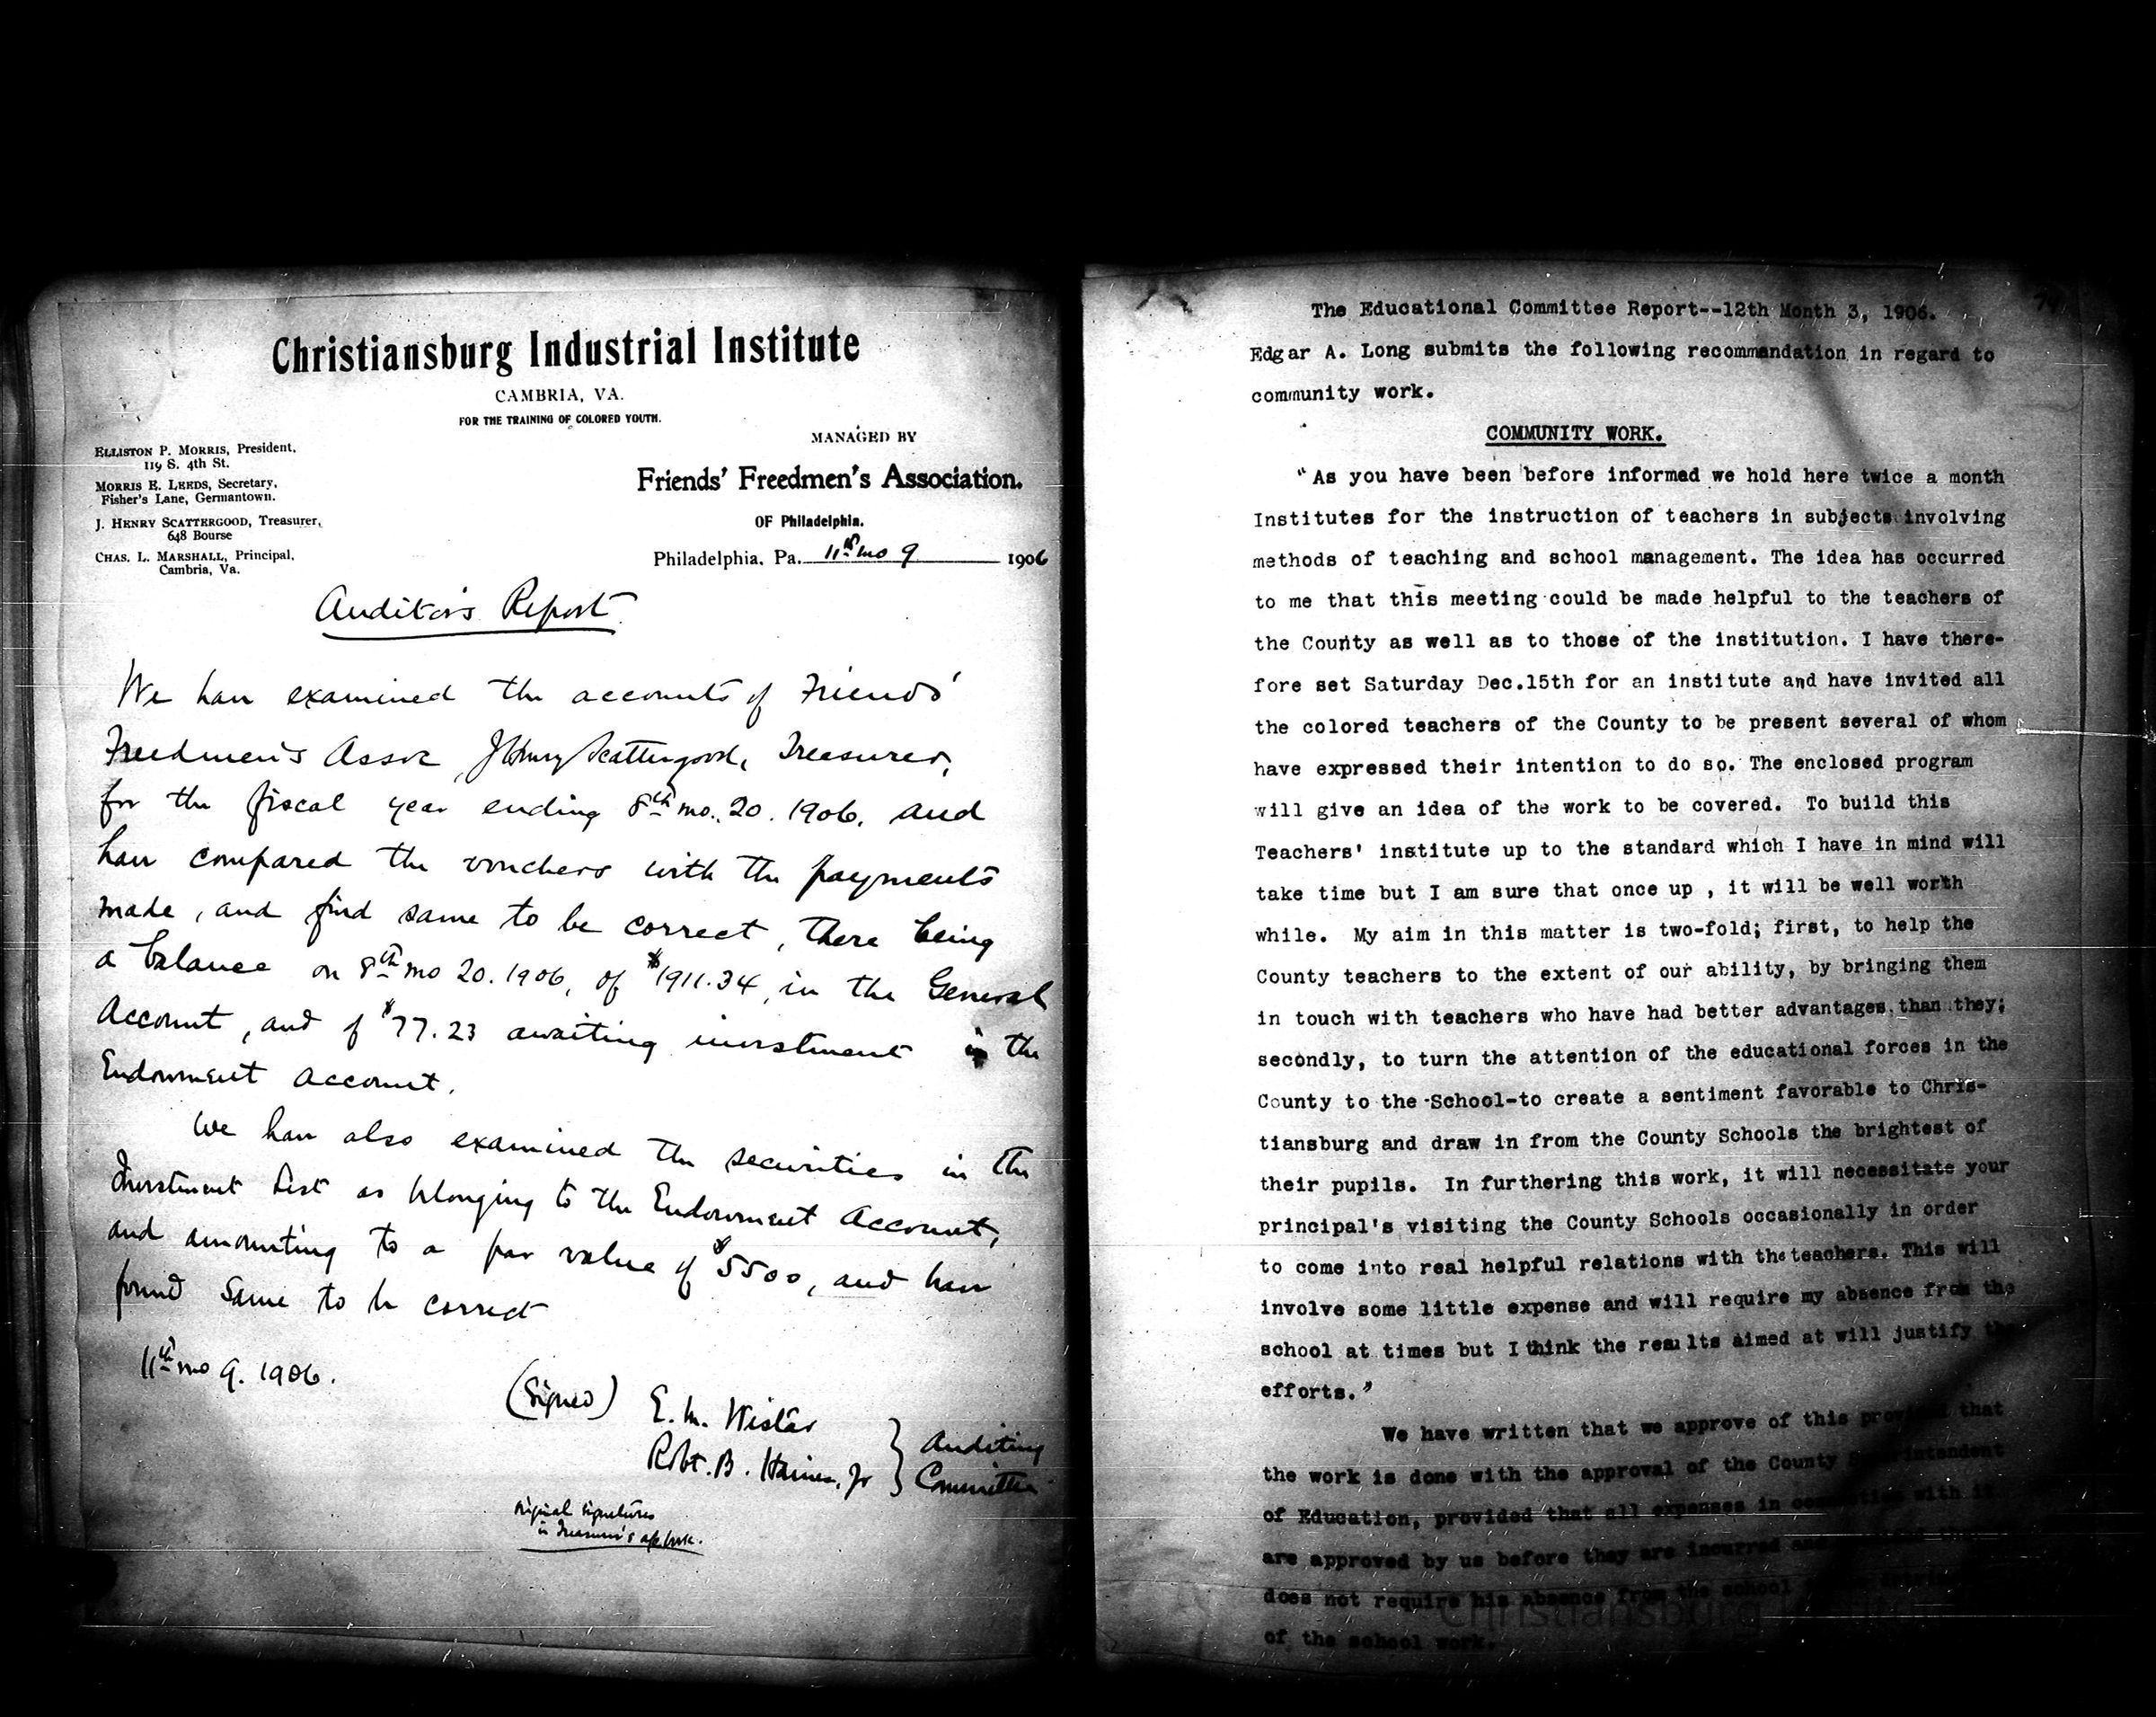 Christiansburg Industrial Institute
CAMBRIA, VA.
FOR THE TRAINING OF COLORED YOUTH.
ELLISTON P. MORRIS, President,
119 S. 4th St.
MORRIS E. LEEDS, Secretary,
Fisher's Lane, Germantown.
J. HENRY SCATTERGOOD, Treasurer,
648 Bourse
CHAS. L. MARSHALL, Principal,
Cambria, Va.
MANAGED BY
Friends' Freedmen's Association.
OF Philadelphia.
Philadelphia, Pa. 11th mo 9 1906
Auditor's Report
We have examined the accounts of Friends'
Freedmen's Assoc, J Henry Scattergood, Treasurer,
for the fiscal year ending 8th mo. 20. 1906, and
have compared the vouchers with the payments
made, and find same to be correct, there being
a balance on 8th mo 20. 1906, of $1911.34, in the General
Account, and of $77.23 awaiting investment in the
Endowment Account.
We have also examined the securities in the
Investment List as belonging to the Endowment Account,
and amounting to a par value of $5500, and have
found same to be correct
11th mo 9. 1906.
(Signed) E. M. Wistar
Robt. B. Haines, Jr } Auditing Committee
original signatures
in Treasurer's a/c book.
The Educational Committee Report--12th Month 3, 1906.
Edgar A. Long submits the following recommendation in regard to
community work.
COMMUNITY WORK.
"As you have been before informed we hold here twice a month
Institutes for the instruction of teachers in subjects involving
methods of teaching and school management. The idea has occurred
to me that this meeting could be made helpful to the teachers of
the County as well as to those of the institution. I have there-
fore set Saturday Dec.15th for an institute and have invited all
the colored teachers of the County to be present several of whom
have expressed their intention to do so. The enclosed program
will give an idea of the work to be covered. To build this
Teachers' institute up to the standard which I have in mind will
take time but I am sure that once up , it will be well worth
while. My aim in this matter is two-fold; first, to help the
County teachers to the extent of our ability, by bringing them
in touch with teachers who have had better advantages than they;
secondly, to turn the attention of the educational forces in the
County to the School-to create a sentiment favorable to Chris-
tiansburg and draw in from the County Schools the brightest of
their pupils. In furthering this work, it will necessitate your
principal's visiting the County Schools occasionally in order
to come into real helpful relations with the teachers. This will
involve some little expense and will require my absence from the
school at times but I think the results aimed at will justify the
efforts."
We have written that we approve of this provided that
the work is done with the approval of the County Superintendent
of Education, provided that all expenses in connection with it
are approved by us before they are incurred and
does not require his absence from the school
of the school work.
Christiansburg